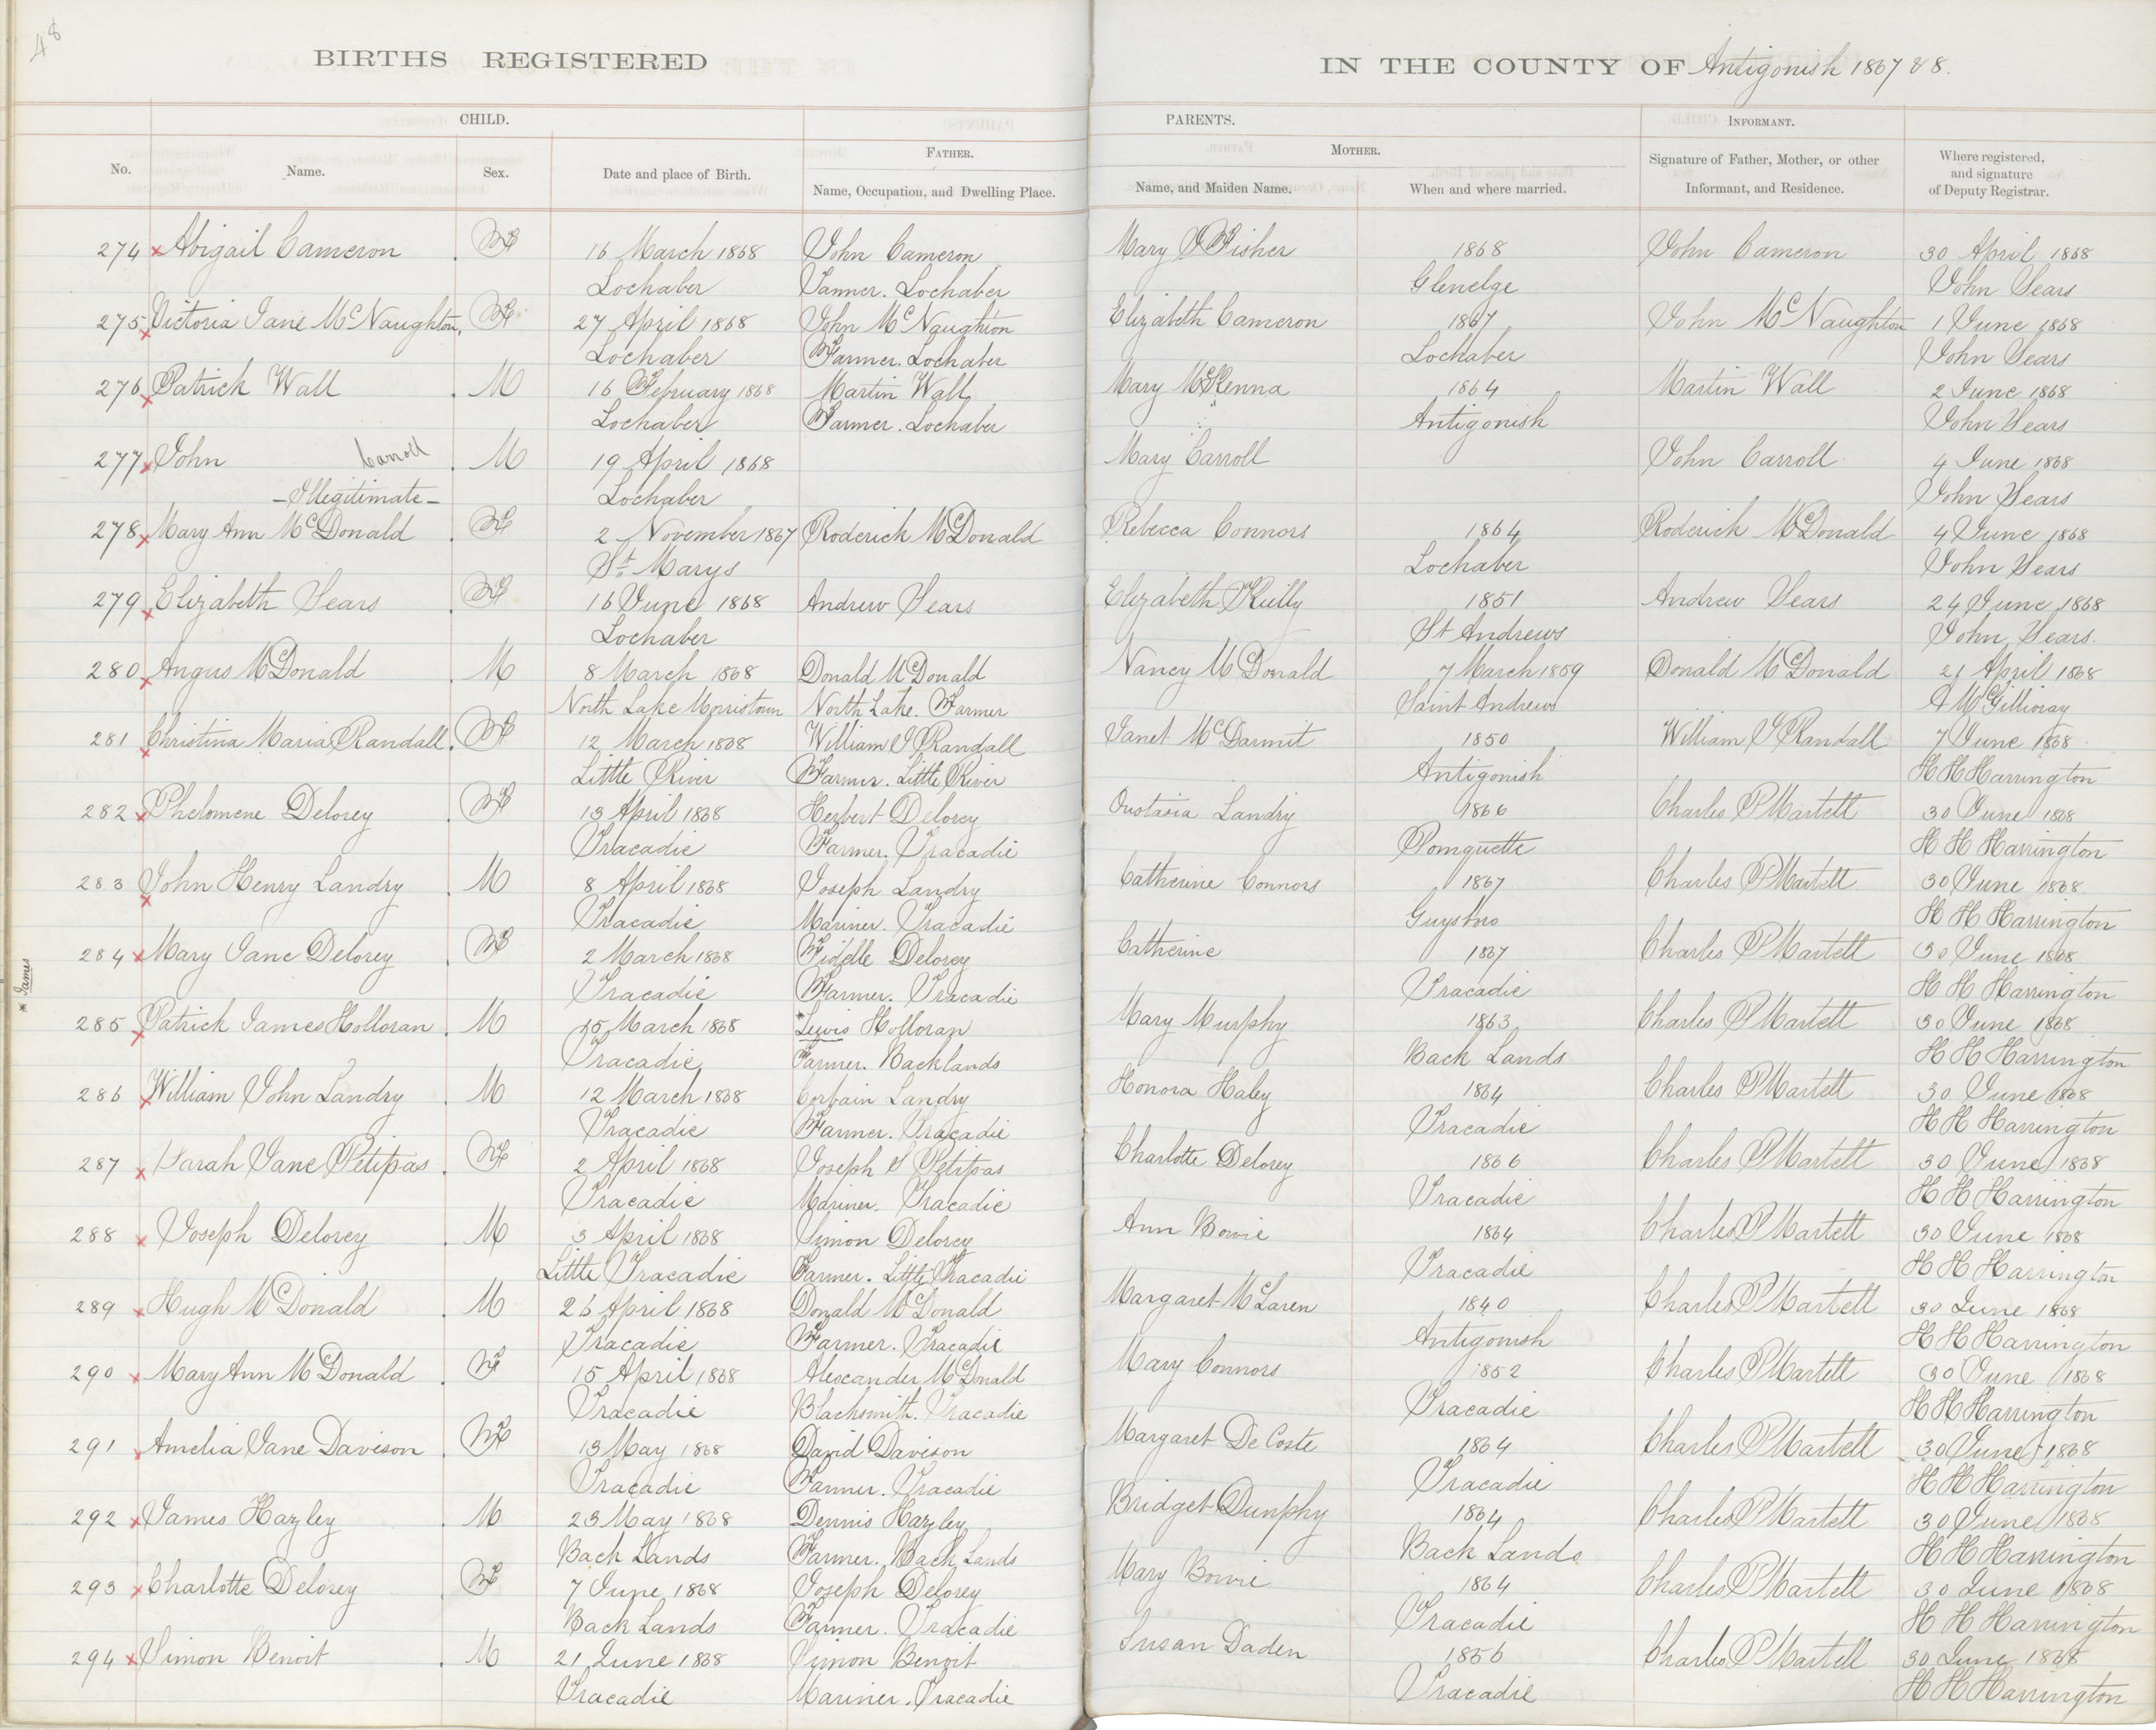 48
BIRTHS REGISTERED IN THE COUNTY OF Antigonish 1867 & 8.
CHILD. PARENTS. INFORMANT.
No. Name. Sex. Date and place of Birth. FATHER. Name, Occupation, and Dwelling Place. MOTHER. Name, and Maiden Name. When and where married. Signature of Father, Mother, or other Informant, and Residence. Where registered, and signature of Deputy Registrar.
274 Abigail Cameron F 16 March 1868 John Cameron Mary J Fisher 1868 John Cameron 30 April 1868
Lochaber Tanner. Lochaber Glenelge John Sears
275 Victoria Jane McNaughton, F 27 April 1868 John McNaughton Elizabeth Cameron 1867 John McNaughton 1 June 1868
Lochaber Farmer. Lochaber Lochaber John Sears
276 Patrick Wall M 16 February 1868 Martin Wall Mary McKenna 1864 Martin Wall 2 June 1868
Lochaber Farmer. Lochaber Antigonish John Sears
277 John Carroll M 19 April 1868 Mary Carroll John Carroll 4 June 1868
- Illegitimate - Lochaber John Sears
278 Mary Ann McDonald F 2 November 1867 Roderick McDonald Rebecca Connors 1864 Roderick McDonald 4 June 1868
St. Marys Lochaber John Sears
279 Elizabeth Sears F 16 June 1868 Andrew Sears Elizabeth O'Reilly 1851 Andrew Sears 24 June 1868
Lochaber St Andrews John Sears.
280 Angus McDonald M 8 March 1868 Donald McDonald Nancy McDonald 7 March 1859 Donald McDonald 21 April 1868
North Lake Morristown North Lake. Farmer Saint Andrews A McGillivray
281 Christina Maria Randall. F 12 March 1868 William J Randall Janet McDarmit 1850 William J Randall 7 June 1868
Little River Farmer. Little River Antigonish H H Harrington
282 Phelomene Delorey F 13 April 1868 Herbert Delorey Oustasia Landry 1866 Charles P Martell 30 June 1868
Tracadie Farmer. Tracadie Pomquette H H Harrington
283 John Henry Landry M 8 April 1868 Joseph Landry Catherine Connors 1867 Charles P Martell 30 June 1868
Tracadie Mariner. Tracadie Guysboro H H Harrington
284 Mary Jane Delorey F 2 March 1868 Fidelle Delorey Catherine 1867 Charles P Martell 30 June 1868
Tracadie Farmer. Tracadie Tracadie H H Harrington
* James
285 Patrick James Holloran M 15 March 1868 *Lewis Holloran Mary Murphy 1863 Charles P Martell 30 June 1868
Tracadie Farmer. Backlands Back Lands H H Harrington
286 William John Landry M 12 March 1868 Corbain Landry Honora Haley 1864 Charles P Martell 30 June 1868
Tracadie Farmer. Tracadie Tracadie H H Harrington
287 Sarah Jane Petipas F 2 April 1868 Joseph S Petipas Charlotte Delorey 1866 Charles P Martell 30 June 1868
Tracadie Mariner. Tracadie Tracadie H H Harrington
288 Joseph Delorey M 3 April 1868 Simon Delorey Ann Bowie 1864 Charles P Martell 30 June 1868
Little Tracadie Farmer. Little Tracadie Tracadie H H Harrington
289 Hugh McDonald M 26 April 1868 Donald McDonald Margaret McLaren 1840 Charles P Martell 30 June 1868
Tracadie Farmer. Tracadie Antigonish H H Harrington
290 Mary Ann McDonald F 15 April 1868 Alexander McDonald Mary Connors 1852 Charles P Martell 30 June 1868
Tracadie Blacksmith. Tracadie Tracadie H H Harrington
291 Amelia Jane Davison F 13 May 1868 David Davison Margaret DeCoste 1864 Charles P Martell 30 June 1868
Tracadie Farmer. Tracadie Tracadie H H Harrington
292 James Hazley M 23 May 1868 Dennis Hazley Bridget Dunphy 1864 Charles P Martell 30 June 1868
Back Lands Farmer. Back Lands Back Lands H H Harrington
293 Charlotte Delorey F 7 June 1868 Joseph Delorey Mary Bowie 1864 Charles P Martell 30 June 1868
Back Lands Farmer. Tracadie Tracadie H H Harrington
294 Simon Benoit M 21 June 1868 Simon Benoit Susan Daden 1856 Charles P Martell 30 June 1868
Tracadie Mariner. Tracadie Tracadie H H Harrington